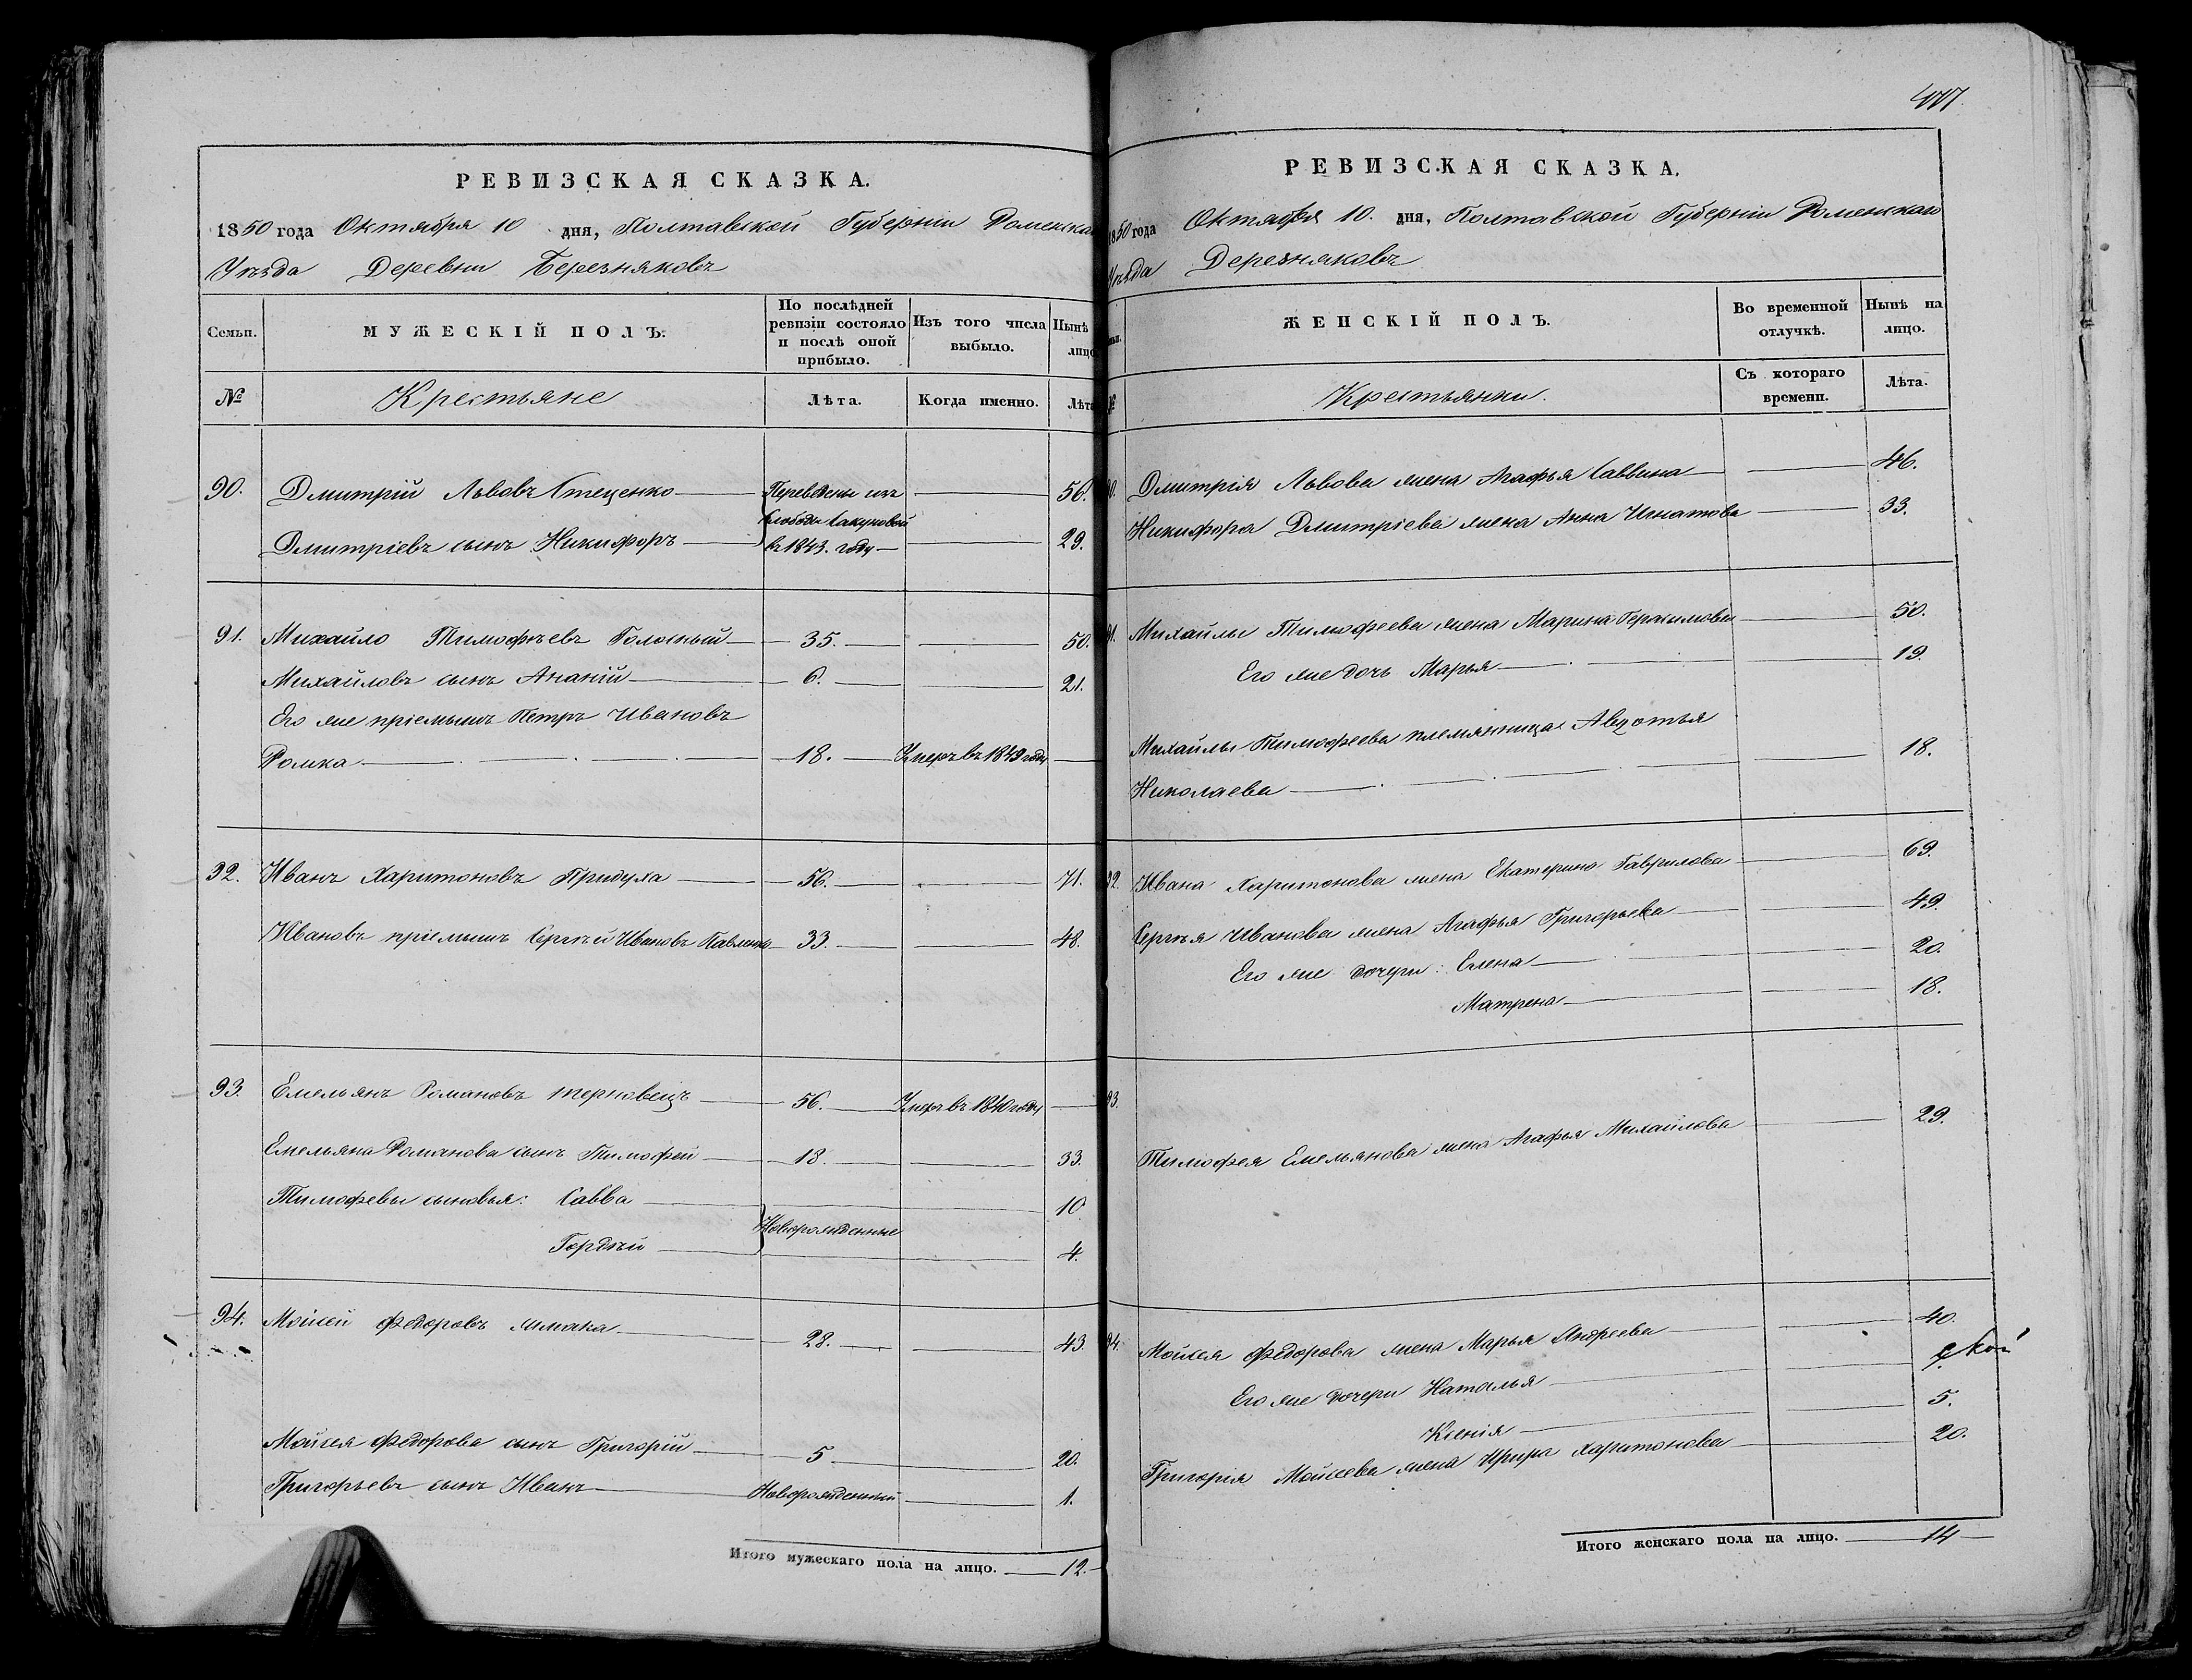 РЕВИЗСКАЯ СКАЗКА.
1850 года Октября 10 дня, Полтавской Губерніи Роменска
Уѣзда Деревни Березняковъ
Семьи.
МУЖЕСКІЙ ПОЛЪ.
По послѣдней ревизіи состояло и послѣ оной прибыло.
Изъ того числа выбыло.
Нынѣ лицо
№
Крестьяне
Лѣта.
Когда именно.
Лѣта
90. Дмитрій Львовъ Стеценко Переведены изъ 56.
Слободы Сакуновой
Дмитріевъ сынъ Никифоръ въ 1843. году 29.
91. Михайло Тимофѣевъ Голосный 35. 50.
Михайловъ сынъ Ананій 6. 21.
Его же пріемышъ Петръ Ивановъ
Ромка 18. Умеръ въ 1849 году
92. Иванъ Харитоновъ Придуха 56. 71.
Ивановъ пріемышъ Сергѣй Ивановъ Павленко 33. 48.
93. Емельянъ Романовъ Терновецъ 56. Умеръ въ 1840 году
Емельяна Романова сынъ Тимофей 18. 33.
Тимофевы сыновья: Савва 10
Новорожденные
Гордѣй 4.
94. Мойсей Федоровъ 28. 43.
Мойсея Федорова сынъ Григорій 5 20.
Григорьевъ сынъ Иванъ Новорожденный 1.
Итого мужескаго пола на лицо. 12.
477.
РЕВИЗСКАЯ СКАЗКА.
1850 года Октября 10. дня, Полтавской Губерніи Роменскаго
Уѣзда Дерезняковъ
ЖЕНСКІЙ ПОЛЪ.
Во временной отлучкѣ.
Нынѣ на лицо.
№
Крестьянки.
Съ котораго времени.
Лѣта.
90. Дмитрія Львова жена Агафья Саввина 46.
Никифора Дмитріева жена Анна Игнатова 33.
91. Михайлы Тимофеева жена Марина Герасимова 50.
Его же дочь Марья 19.
Михайлы Тимофеева племянница Авдотья
Николаева 18.
92. Ивана Харитонова жена Екатерина Гаврилова 69.
Сергѣя Иванова жена Агафья Григорьева 49.
Его же дочери: Елена 20.
Матрена 18.
93.
Тимофея Емельянова жена Агафья Михайлова 29.
94. Мойсея Федорова жена Марья Андреева 40.
Его же дочери Наталья
Ксенія 5.
Григорія Мойсеева жена Ирина Харитонова 20.
Итого женскаго пола на лицо. 14